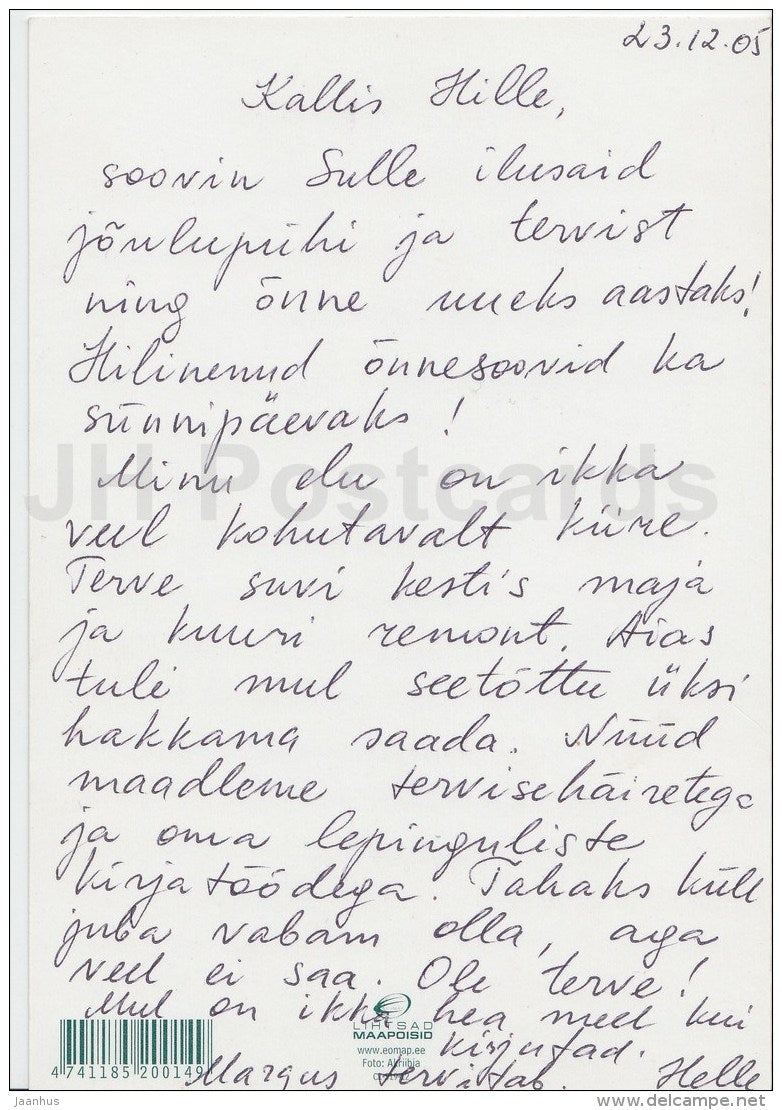 23.12.05
Kallis Hille,
soovin Sulle ilusaid
jõulupühi ja tervist
ning õnne uueks aastaks!
Hilinenud õnnesoovid ka
sünnipäevaks!
Minu elu on ikka
veel kohutavalt kiire.
Terve suvi kestis maja
ja kuuri remont. Aias
tuli mul seetõttu üksi
hakkama saada. Nüüd
maadleme tervisehäiretega
ja oma lepinguliste
kirjatöödega. Tahaks küll
juba vabam olla, aga
veel ei saa. Ole terve!
Mul on ikka hea meel kui
kirjutad.
Margus tervitab. Helle
LIHTSAD
MAAPOISID
www.eomap.ee
Foto: Akriibia
4 741185 200149
JH Postcards
jaanhus
delcampe.net